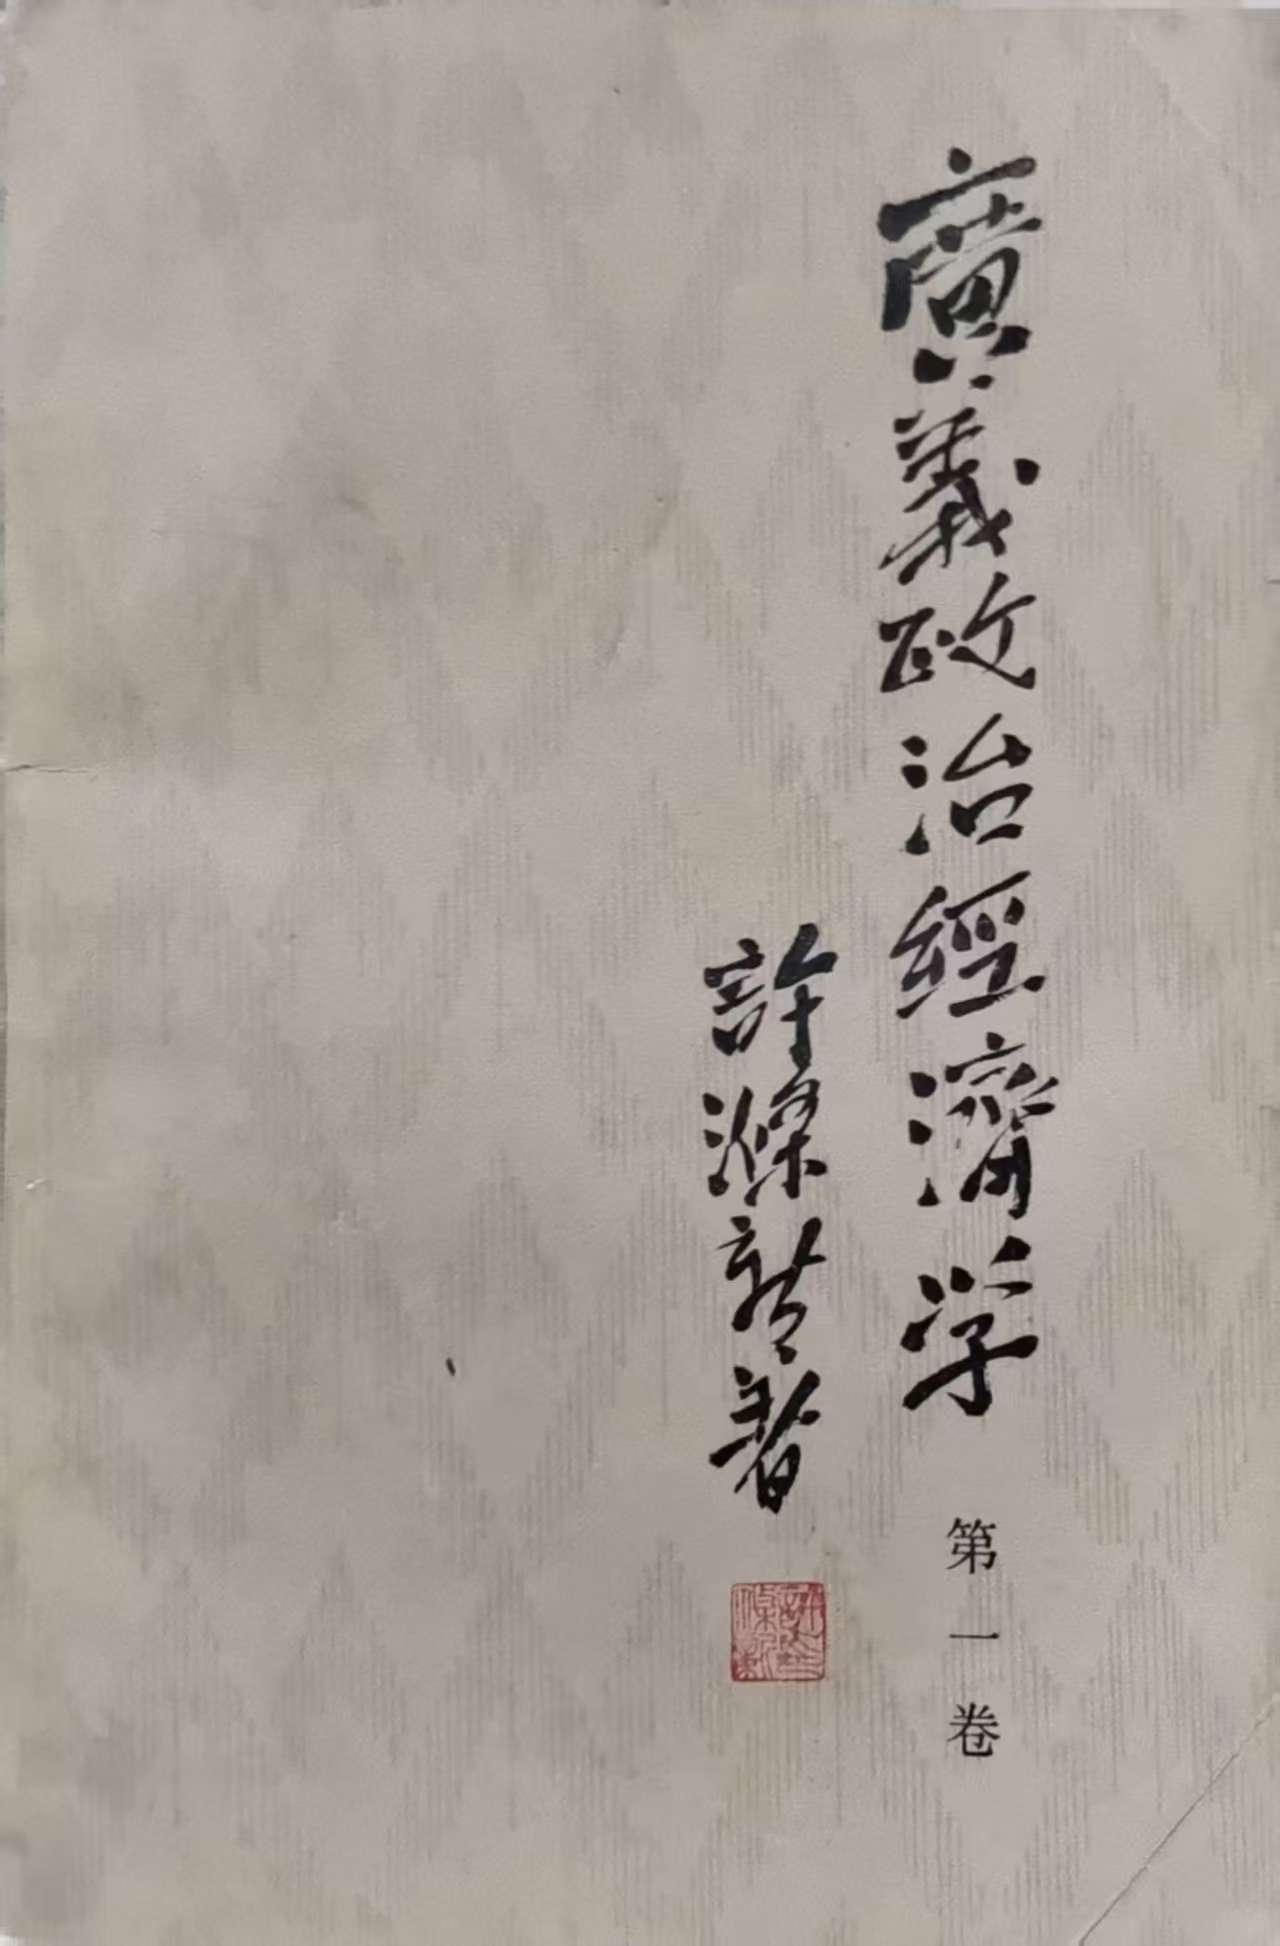 廣義政治經濟学
第一卷
許滌新著